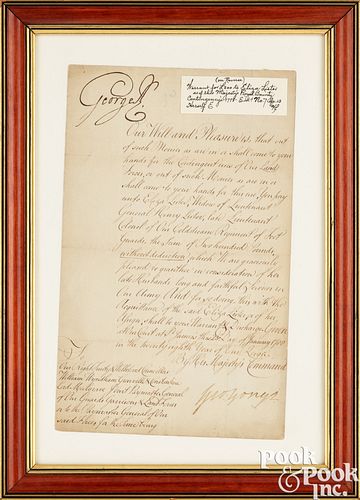 George R.
Warrant for £200 to Eliza: Lister
Our Will and Pleasure is, that out
of such Monies as are in or shall come to your
hands for the Contingent uses of Our Land
Forces, or out of such Monies as are in or
shall come to your hands for this use, You pay
unto Eliza Lister, Widow of Lieutenant
General Henry Lister, late Lieutenant
Colonel of Our Coldstream Regiment of Foot
Guards, the Sum of Two hundred Pounds,
without deduction, which We are graciously
pleased to give her in consideration of her
late Husbands long and faithful Services in
Our Army. And for so doing this with the
Acquittance of the said Eliza Lister or of her
Assigns, shall be your Warrant & discharge. Given
at Our Court at St. James's this day of January 17
in the twenty eighth Year of Our Reign.
By His Majesty's Command
Geo Yonge
To
Our Right Trusty
William Wyndham Grenville & Constantine
Lord Mulgrave Joint Paymaster General
of Our Guards Garrisons & Land Forces
or to the Paymaster General of Our
said Forces for the time being
POOK
& POOK
Inc.